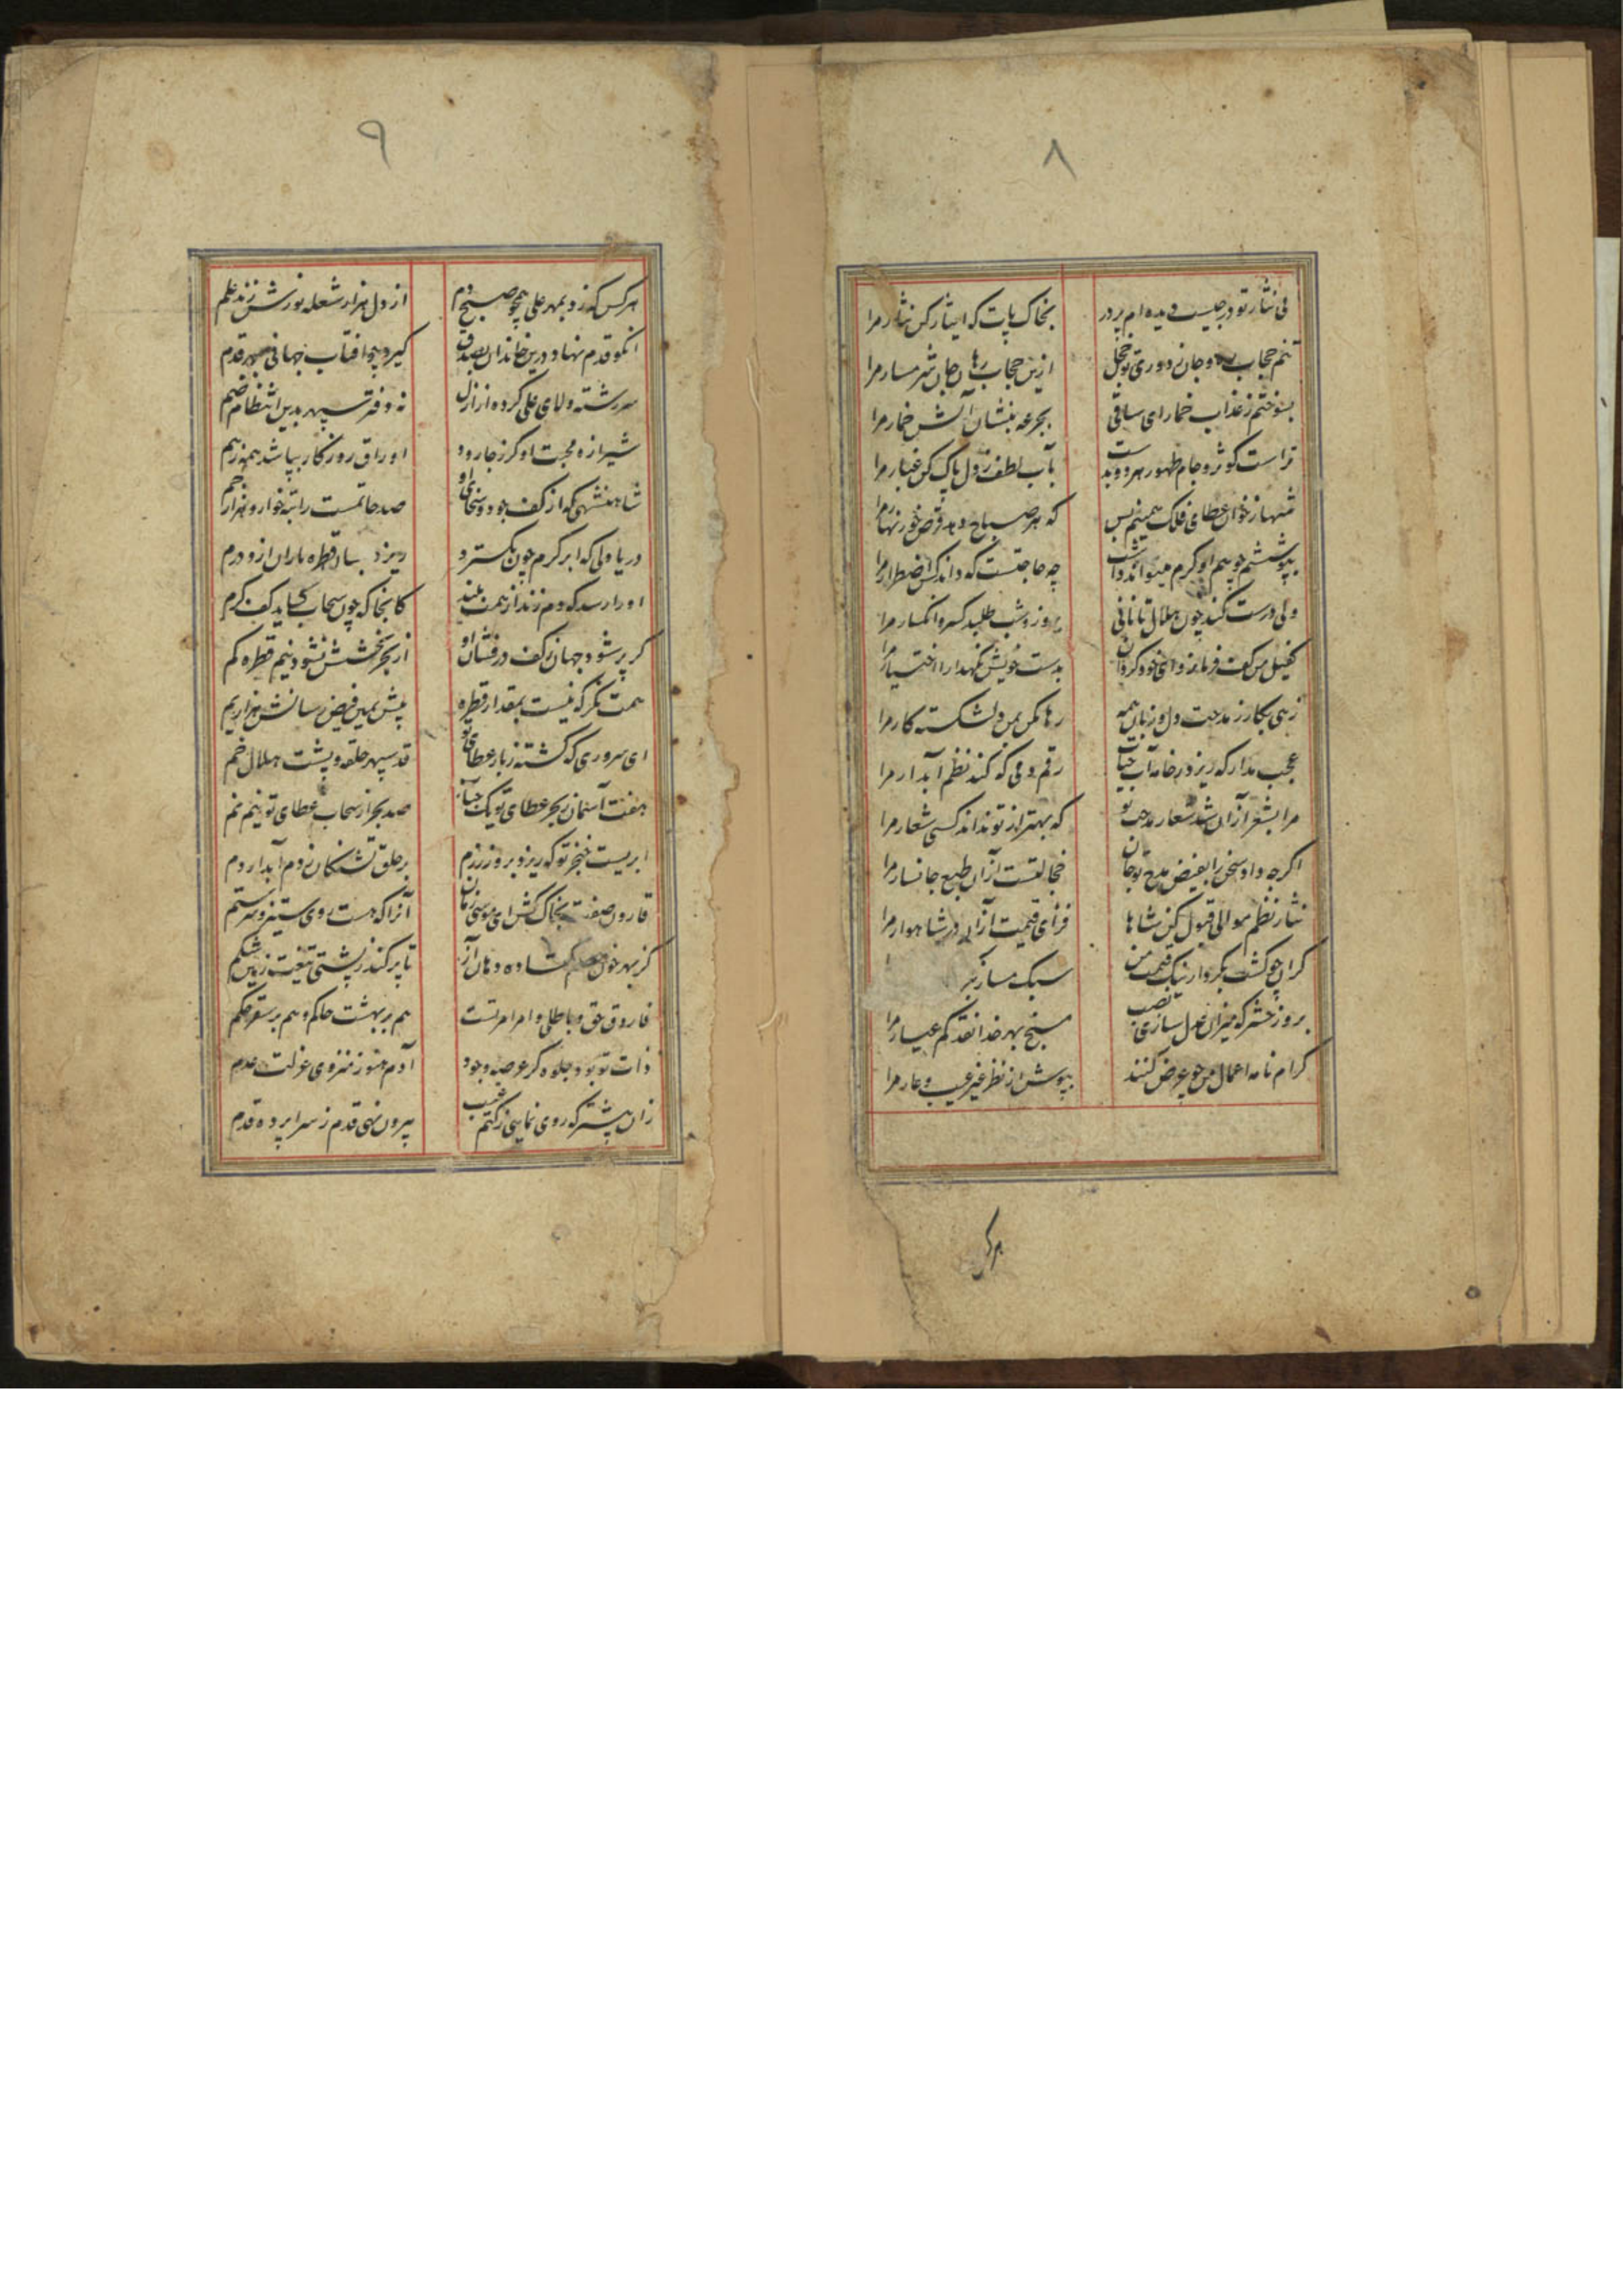 ۸
پی نثار تو در جیب دیده‌ام پر در
بخاک پات که ایثار کن نثار مرا
تنم حجاب ره و جان ز دوری تو خجل
ازین حجاب رهان جان شرمسار مرا
بسوختم ز عذاب خمار ای ساقی
بجرعه بنشان آتش خمار مرا
تراست کوثر و جام طهور هر دو بدست
بآب لطف ز دل پاک کن غبار مرا
خوان عطای فلک همینم بس
که هر صباح دهد قرص خور نهار مرا
بپوششم چو هم او کرم میتواند داشت
چه حاجتست که داند کس اضطرار مرا
ولی درست کند چون هلال تا نانی
بروز و شب طلبد کسر و انکسار مرا
کفیل من کف فرمانروای خود گردان
بدست خویش نگهدار اختیار مرا
زهی بکار ز مدحت دل و زبان همه
رها مکن بمن دلشکسته کار مرا
عجب مدار که ریزد ز خامه آب حیات
رقم دمی که کند نظم آبدار مرا
مرا بشعر از آن شد شعار مدحت تو
که بهتر از تو نداند کسی شعار مرا
اگرچه داد سخن را بفیض مدح تو جان
خجالتست از آن طبع جانسار مرا
نثار نظم موالی قبول کن شاها
فزای قیمت از آن در شاهوار مرا
گران چو گشت بکردار نیک قیمت من
سبک مساز
بروز حشر که میزان عدل سازی نصب
مسنج بهر خدا نقد کم عیار مرا
کرام نامه اعمال من چو عرض کنند
بپوش از نظر غیر عیب و عار مرا
هر
۹
هر کس که زد بمهر علی همچو صبح دم
از دل هزار شعله نورش زند علم
آنکو قدم نهاد درین خاندان بصدق
گیرد چو آفتاب جهانی بهر قدم
سررشته ولای علی کرده از ازل
نه دفتر سپهر بدین انتظام ضم
شیرازه محبت او گر ز جا رود
اوراق روزگار بپاشد همه ز هم
شاهنشهی که از کف جود و سخای او
صد حاتمست راتبه خوار و هزار جم
دریا دلی که ابر کرم چون بگسترد
ریزد بسان قطره باران ازو درم
او را رسد که دم زند از همت بلند
کانجا که چون سحاب گشاید کف کرم
گر پر شود جهان ز کف درفشان او
از بحر بخشش نشود نیم قطره کم
همت نگر که نیست بمقدار قطره
پیش یمین فیض رسانش هزار یم
ای سروری که گشته ز بار عطای تو
قد سپهر حلقه و پشت هلال خم
هفت آسمان ز بحر عطای تو یک حباب
صد بحر از سحاب عطای تو نیم نم
ابریست خنجر تو که ریزد بروز رزم
بر حلق تشنگان ز دم آبدار دم
قارون صفت بخاک کش ای موسی زمان
آنرا که هست روی ستیز و سر ستم
کز بهر خون گشاده دهان آز
تا پر کند ز پشتی تیغت زمین شکم
فاروق حق و باطلی و امر امر تست
هم بر بهشت حاکم و هم بر سقر حکم
ذات تو بود جلوه گر عرصه وجود
آدم هنوز منزوی عزلت عدم
زان پیشتر که روی نمایی ز کتم غیب
بیرون نهی قدم ز سراپرده قدم